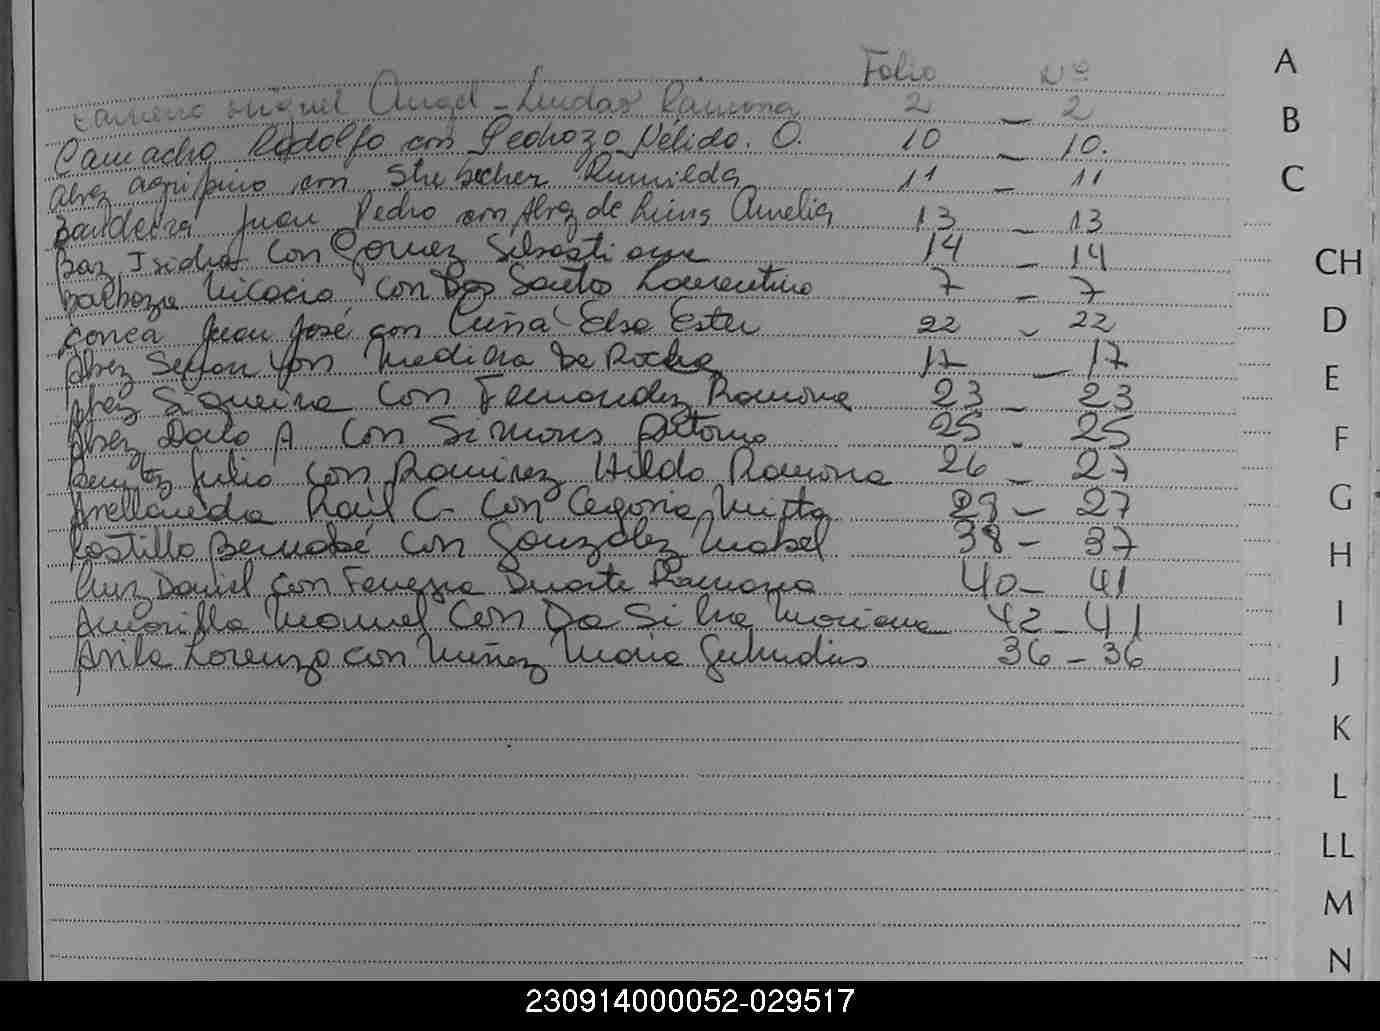 Folio Nº
Miguel Angel - Ramona 2 - 2
Camacho Rodolfo con Pedrozo Nélida. O. 10 - 10.
Alvez agripino con Rumilda 11 - 11
Bandeira Juan Pedro con Alvez de Lins Amelia 13 - 13
Baz Isidro Con Gomez Sebastiana 14 - 14
Balboza Nicacia Con Dos Santos Laurentino 7 - 7
Correa Juan José con Elsa Ester 22 - 22
Alvez con Medina De Rocha 17 - 17
Alvez Siqueira Con Fernandez Ramona 23 - 23
Alvez A Con Simons 25 - 25
Benitez Julio con Ramirez Hilda Ramona 26 - 27
Arellaneda Raúl C. Con Mirta 29 - 27
Castillo Bernabé con González Mabel 38 - 37
Daniel con Duarte Ramona 40 - 41
Amarilla Manuel Con Da Silva Mariana 42 - 41
Lorenzo con Nuñez Maria 36 - 36
A
B
C
CH
D
E
F
G
H
I
J
K
L
LL
M
N
230914000052-029517